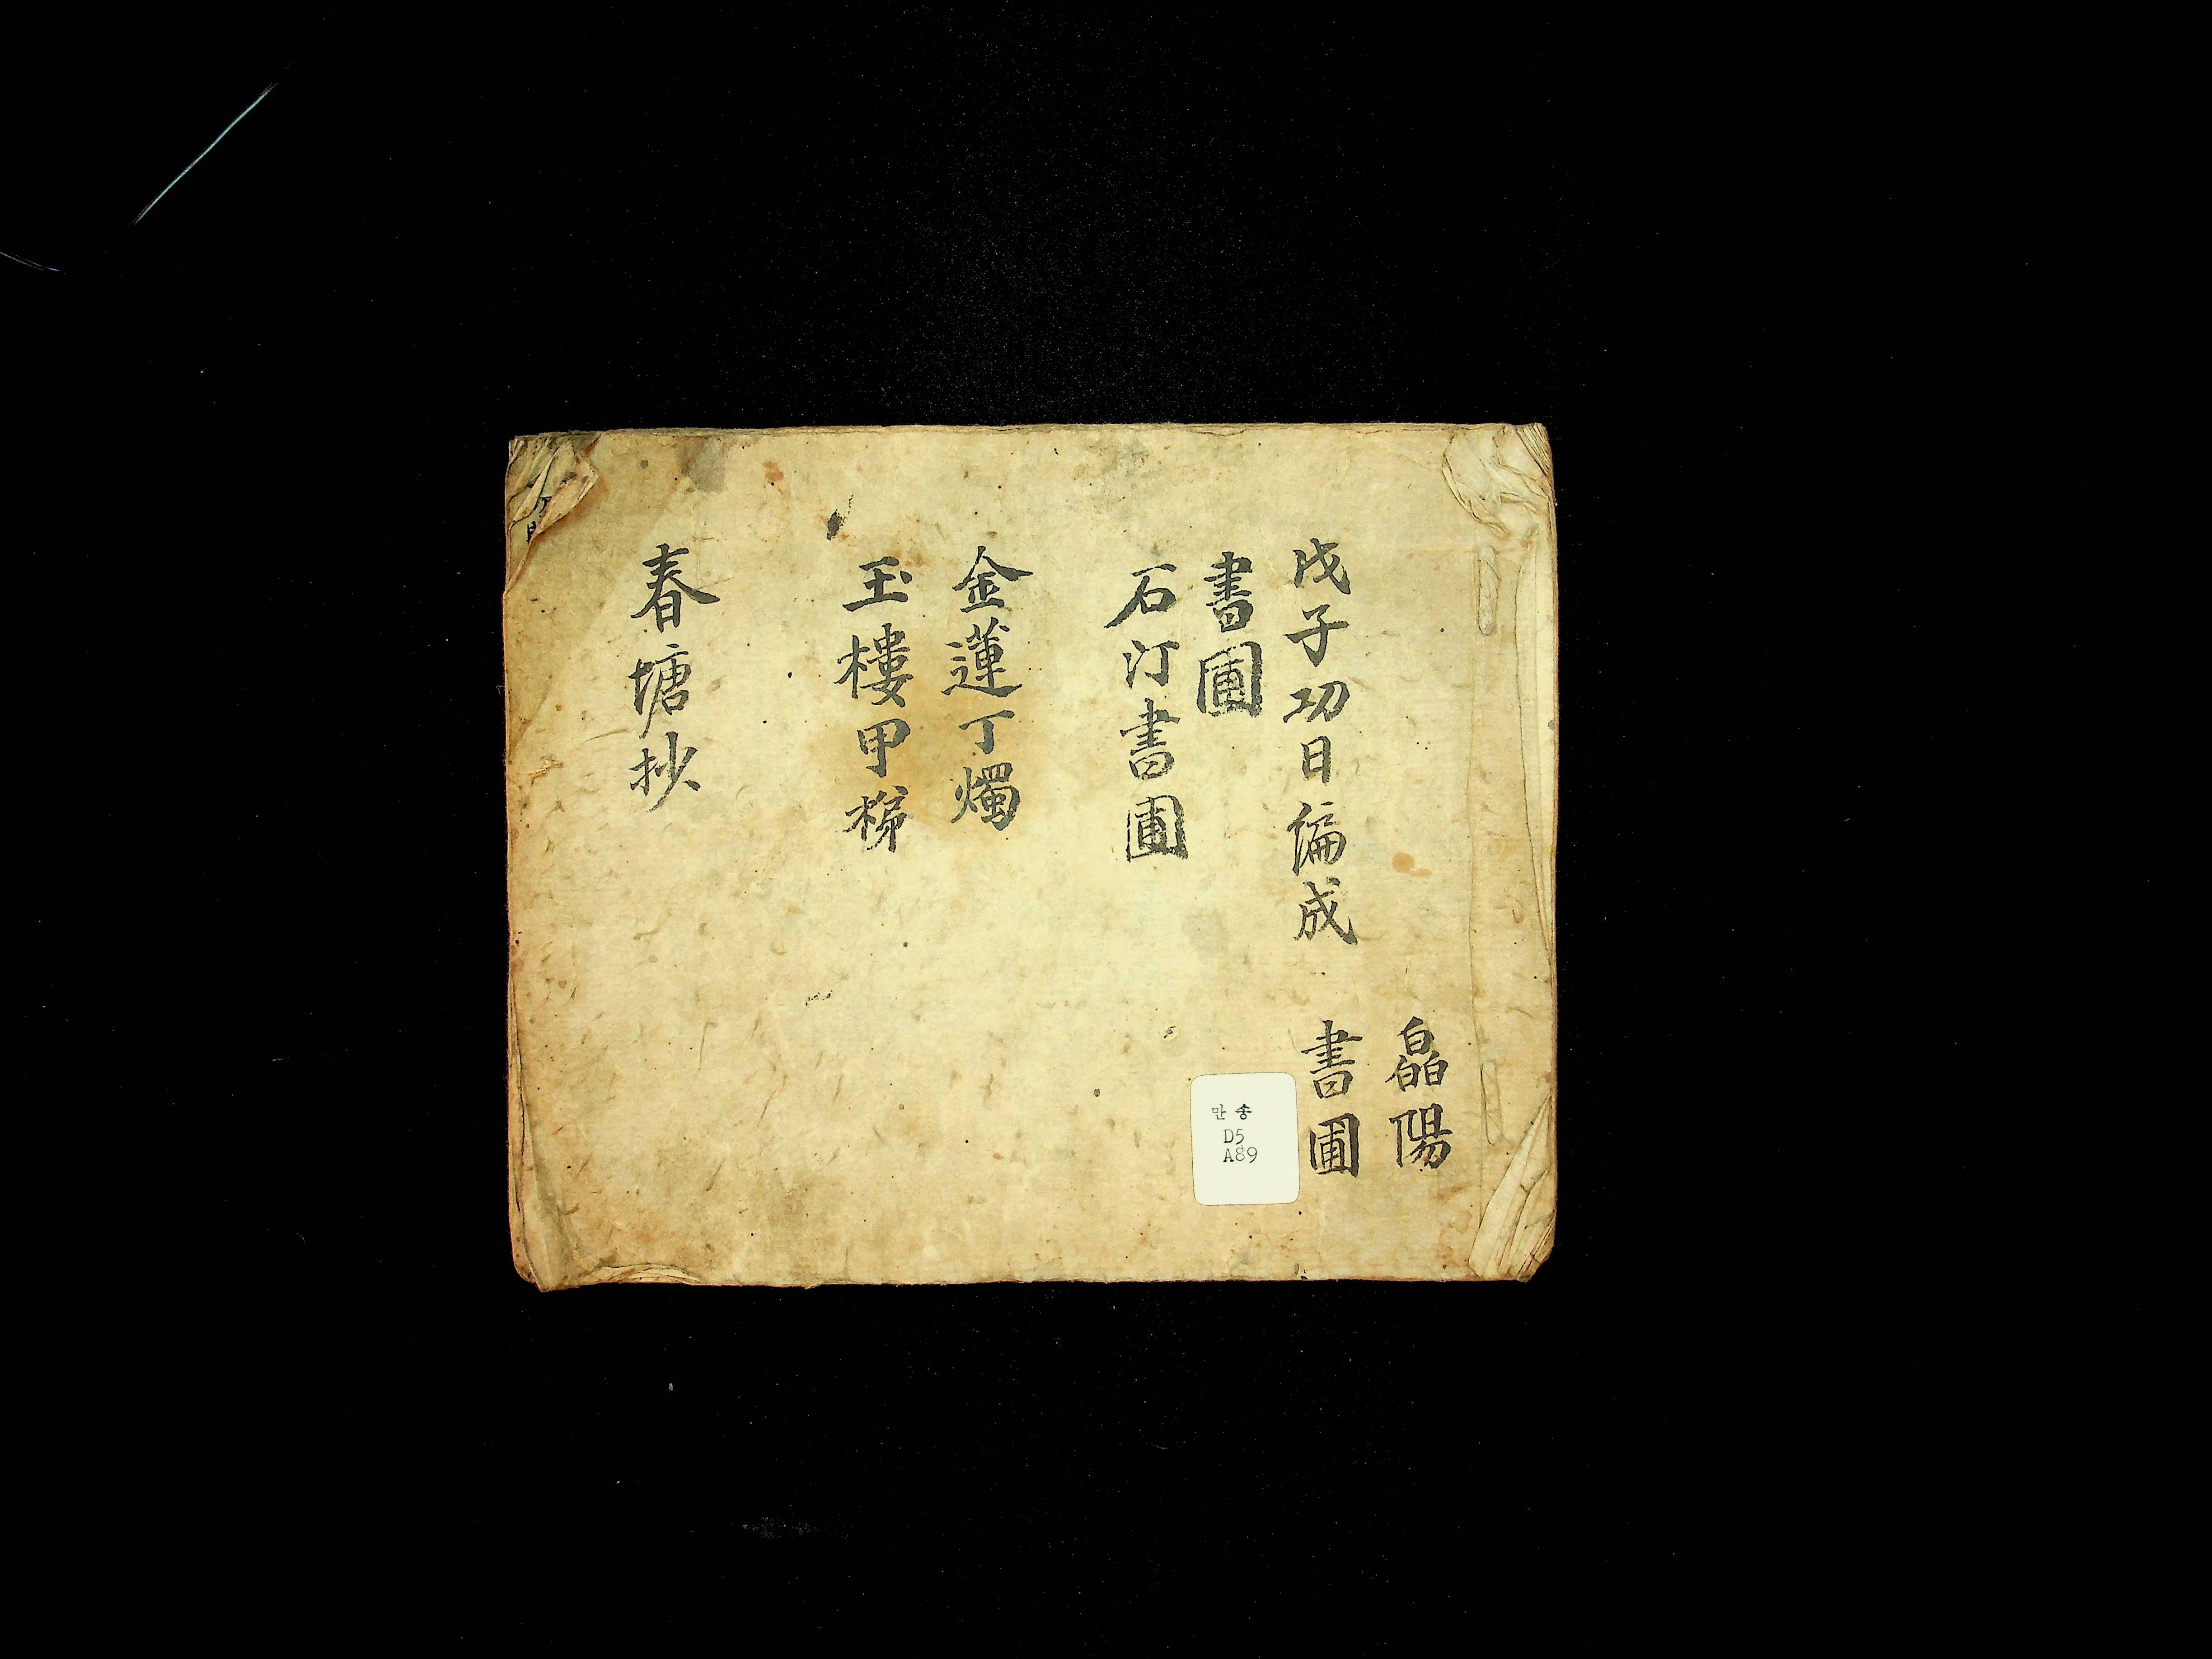 皛陽
書圃
戊子刃日偏成
書圃
石汀書圃
金蓮丁燭
玉樓甲梯
春塘抄
만송
D5
A89